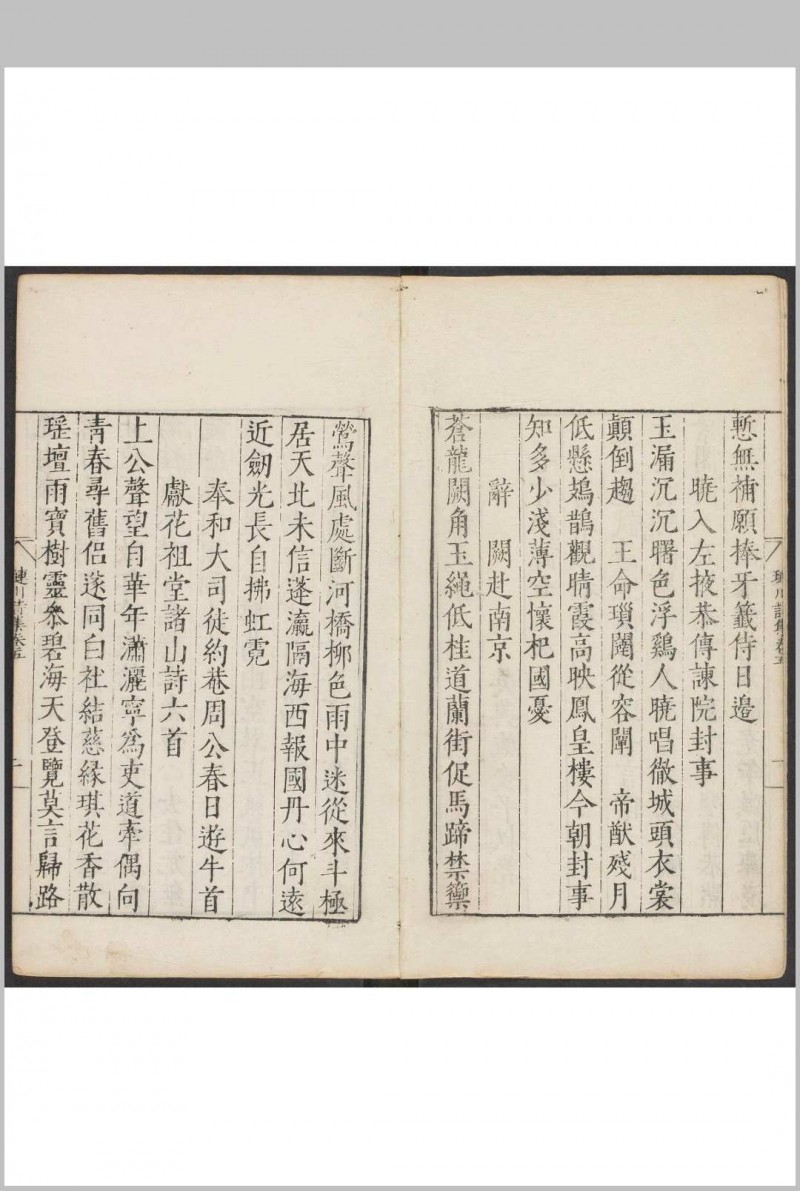 慙無補願捧牙籤侍日邊
曉入左掖恭傳諫院封事
玉漏沉沉曙色浮鷄人曉唱徹城頭衣裳
顛倒趨　王命瑣闥從容闡　帝猷殘月
低懸鳷鵲觀晴霞高映鳳皇樓今朝封事
知多少淺薄空懷杞國憂
辭　闕赴南京
蒼龍闕角玉繩低桂道蘭街促馬蹄禁籞
鶯聲風處斷河橋柳色雨中迷從來斗極
居天北未信蓬瀛隔海西報國丹心何遠
近劒光長自拂虹霓
奉和大司徒約菴周公春日遊牛首
獻花祖堂諸山詩六首
上公聲望自華年瀟灑寧爲吏道牽偶向
青春尋舊侶遂同白社結慈緣琪花香散
瑤壇雨寶樹靈參碧海天登覽莫言歸路